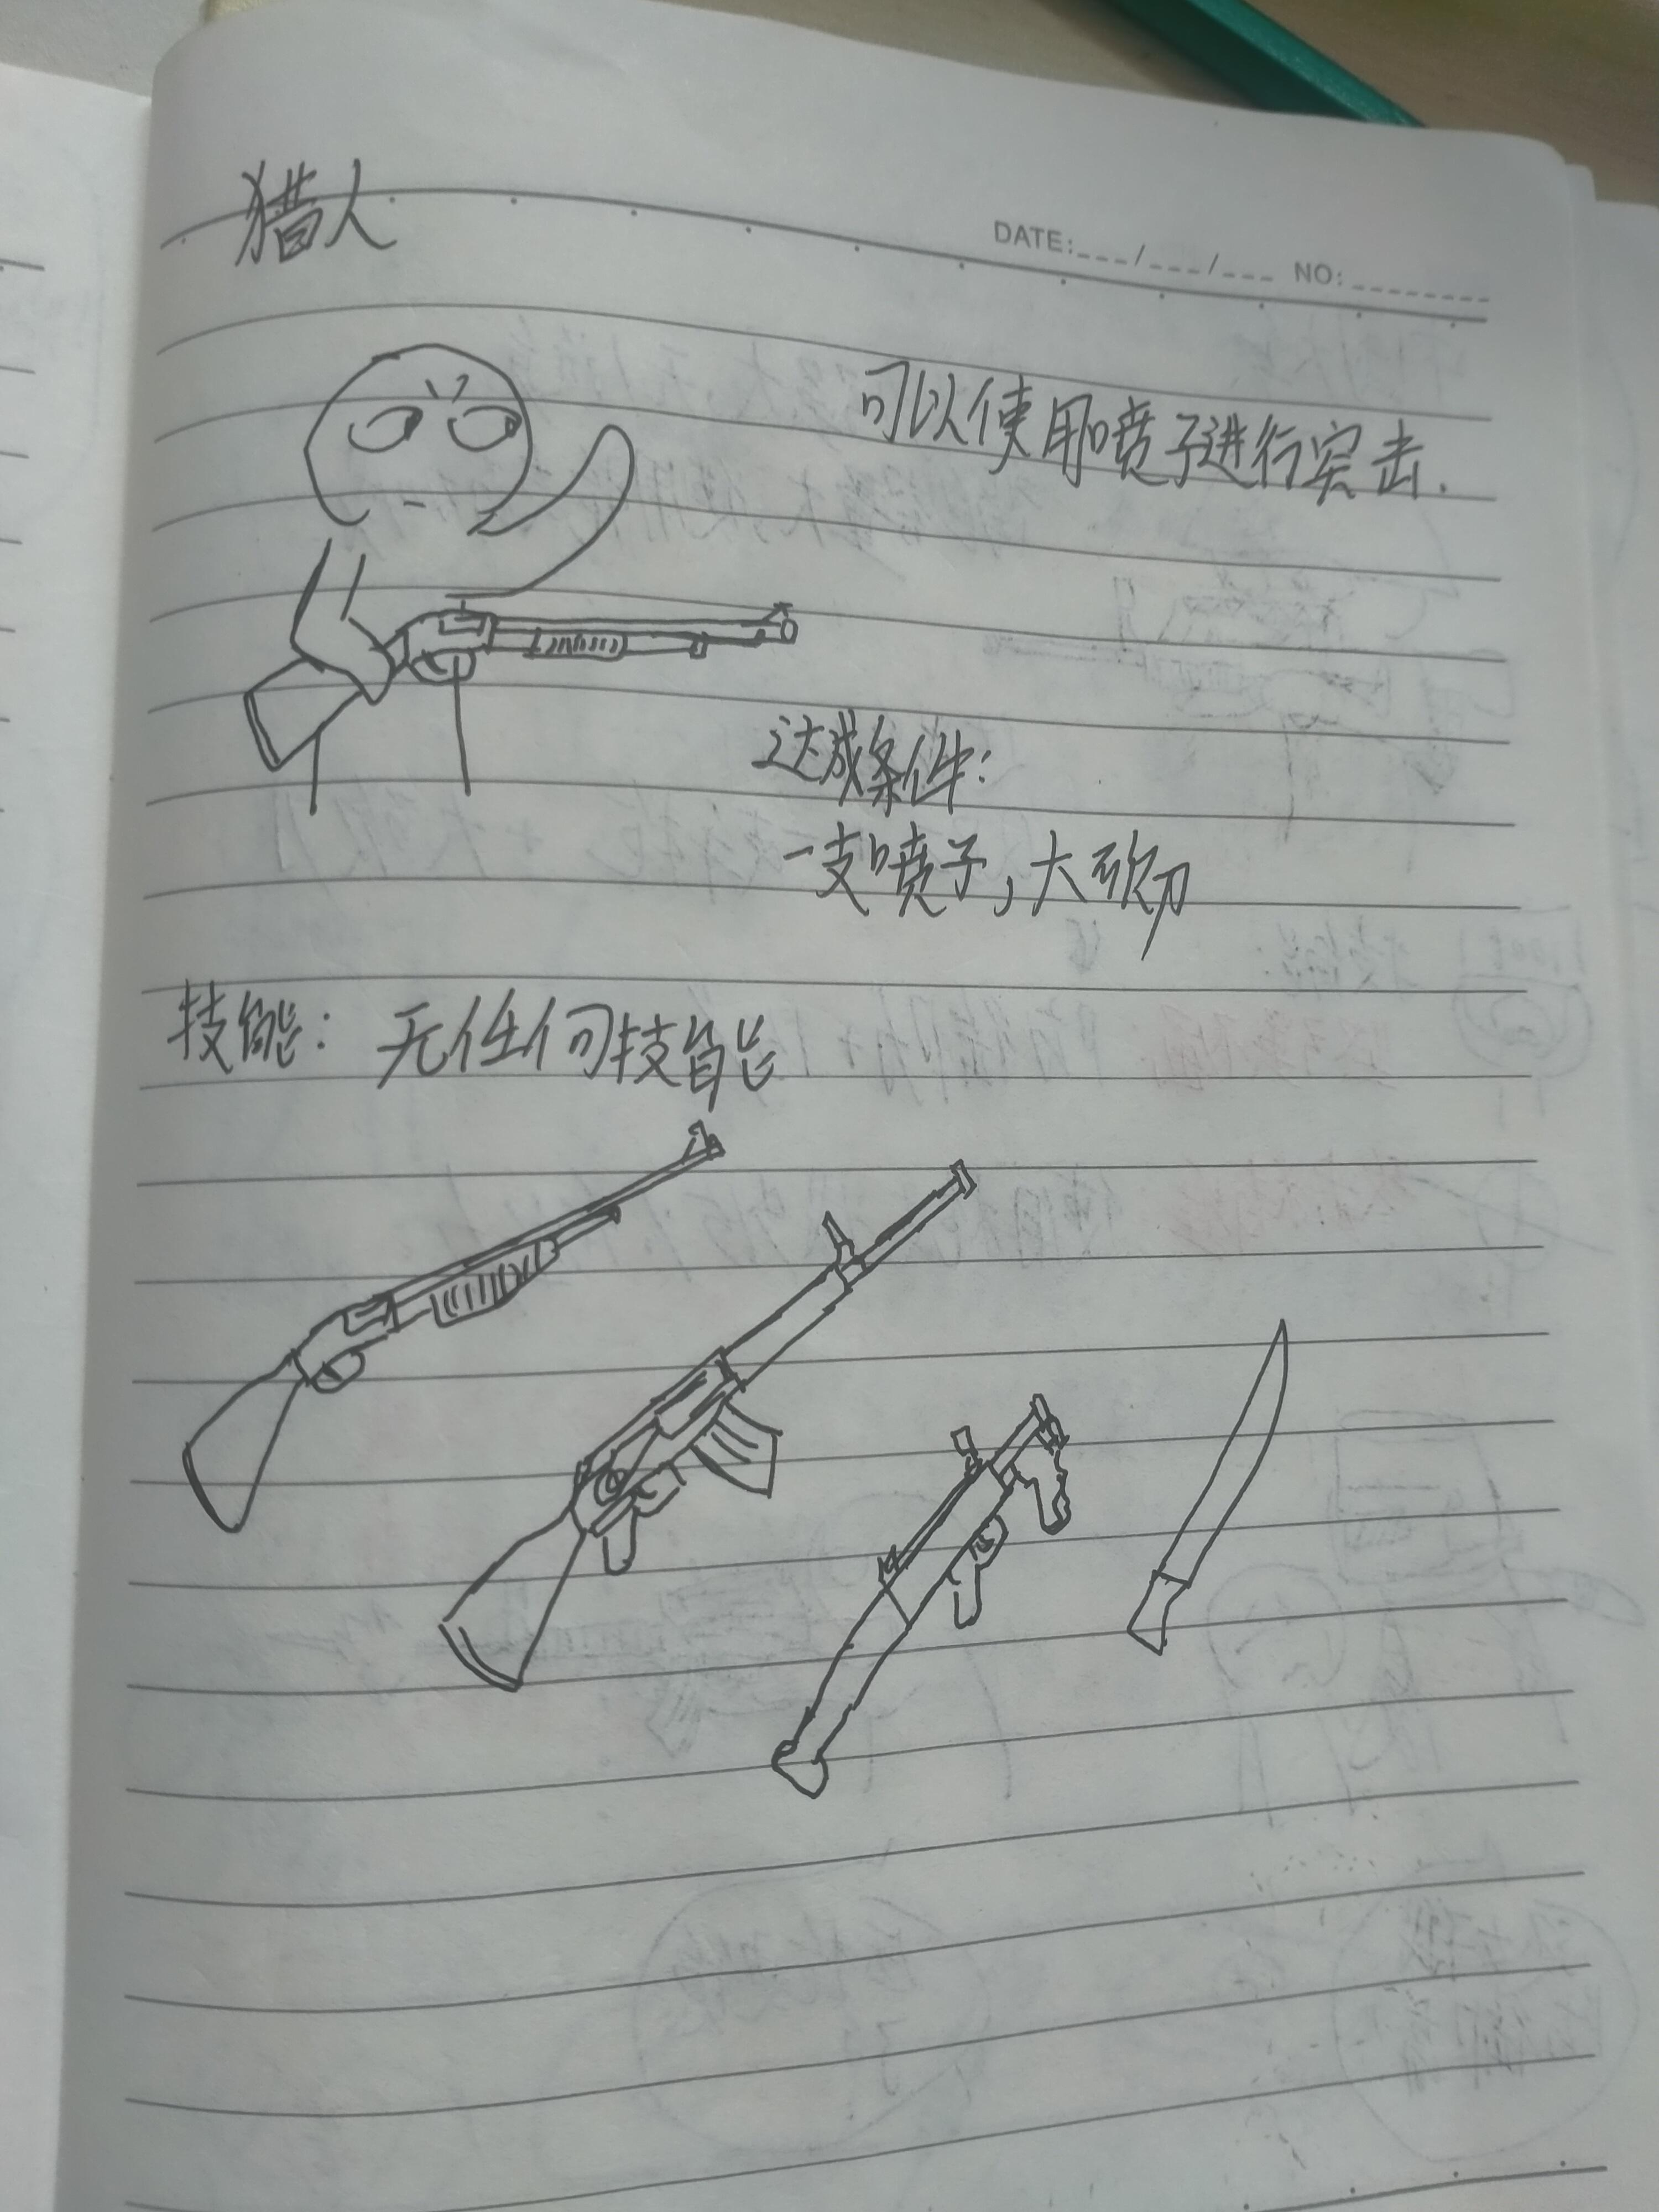 猎人
DATE:___/___/___ NO:________
可以使用喷子进行突击.
达成条件:
一支喷子,大砍刀
技能: 无任何技能